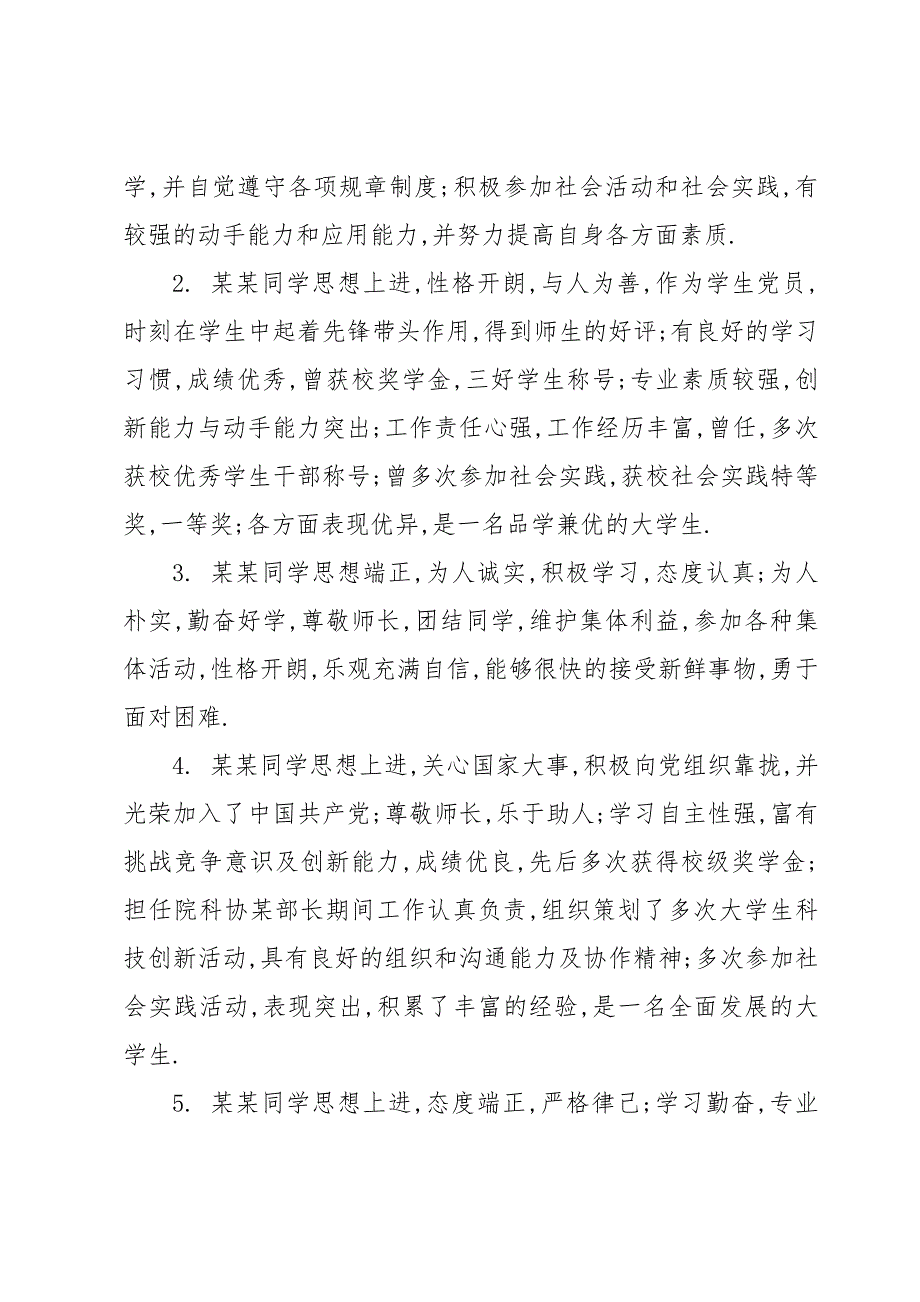 学,并自觉遵守各项规章制度;积极参加社会活动和社会实践,有
较强的动手能力和应用能力,并努力提高自身各方面素质.
2. 某某同学思想上进,性格开朗,与人为善,作为学生党员,
时刻在学生中起着先锋带头作用,得到师生的好评;有良好的学习
习惯,成绩优秀,曾获校奖学金,三好学生称号;专业素质较强,创
新能力与动手能力突出;工作责任心强,工作经历丰富,曾任,多次
获校优秀学生干部称号;曾多次参加社会实践,获校社会实践特等
奖,一等奖;各方面表现优异,是一名品学兼优的大学生.
3. 某某同学思想端正,为人诚实,积极学习,态度认真;为人
朴实,勤奋好学,尊敬师长,团结同学,维护集体利益,参加各种集
体活动,性格开朗,乐观充满自信,能够很快的接受新鲜事物,勇于
面对困难.
4. 某某同学思想上进,关心国家大事,积极向党组织靠拢,并
光荣加入了中国共产党;尊敬师长,乐于助人;学习自主性强,富有
挑战竞争意识及创新能力,成绩优良,先后多次获得校级奖学金;
担任院科协某部长期间工作认真负责,组织策划了多次大学生科
技创新活动,具有良好的组织和沟通能力及协作精神;多次参加社
会实践活动,表现突出,积累了丰富的经验,是一名全面发展的大
学生.
5. 某某同学思想上进,态度端正,严格律己;学习勤奋,专业